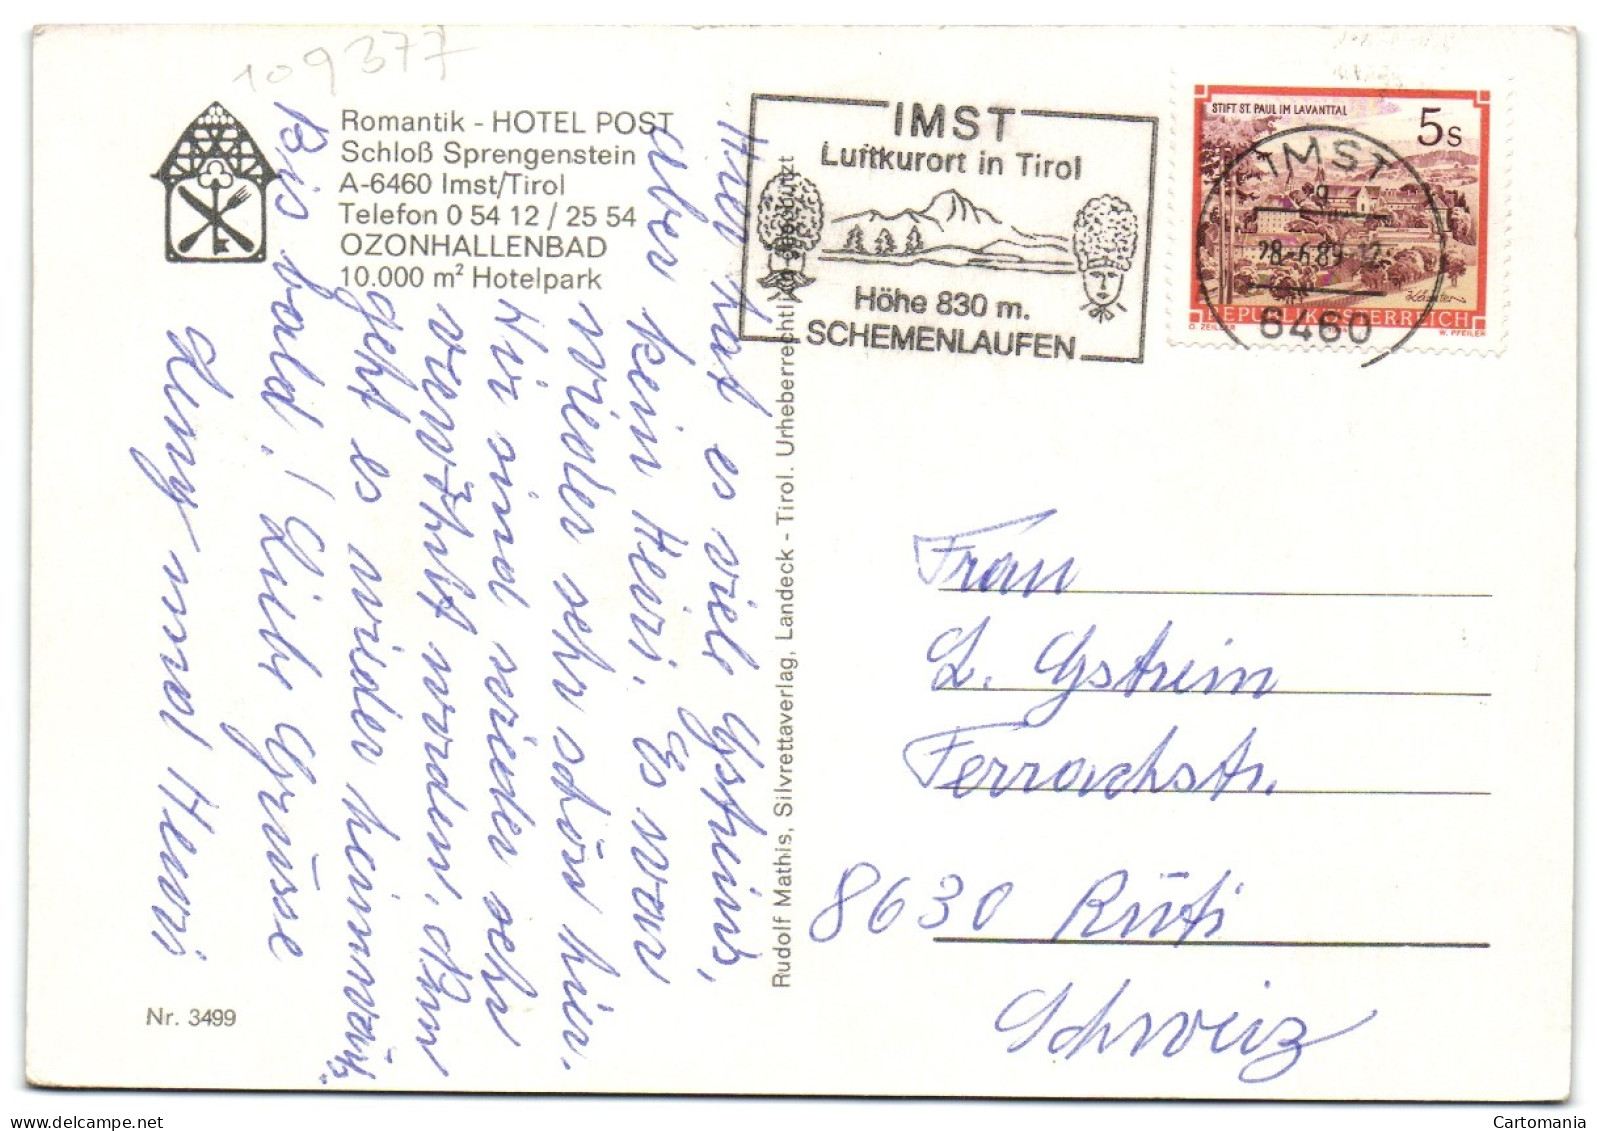 109377
Romantik - HOTEL POST
Schloß Sprengenstein
A-6460 Imst/Tirol
Telefon 0 54 12 / 25 54
OZONHALLENBAD
10.000 m² Hotelpark
Hier hat es viele Gstreins,
aber kein Heiri. Es war
wieder sehr schön hier.
Wir sind wieder sehr
verwöhnt worden, dann
geht es wieder heimwärts.
Bis bald! Liebe Grüsse
Lenny und Heiri
Nr. 3499
Rudolf Mathis, Silvrettaverlag, Landeck - Tirol. Urheberrechtlich geschützt
IMST
Luftkurort in Tirol
Höhe 830 m.
SCHEMENLAUFEN
STIFT ST. PAUL IM LAVANTTAL
5s
REPUBLIK ÖSTERREICH
O. ZEILER
W. PFEILER
IMST
28.-6.89-12
6460
Frau
L. Gstrein
Ferrachstr.
8630 Rüti
Schweiz
Cartomania